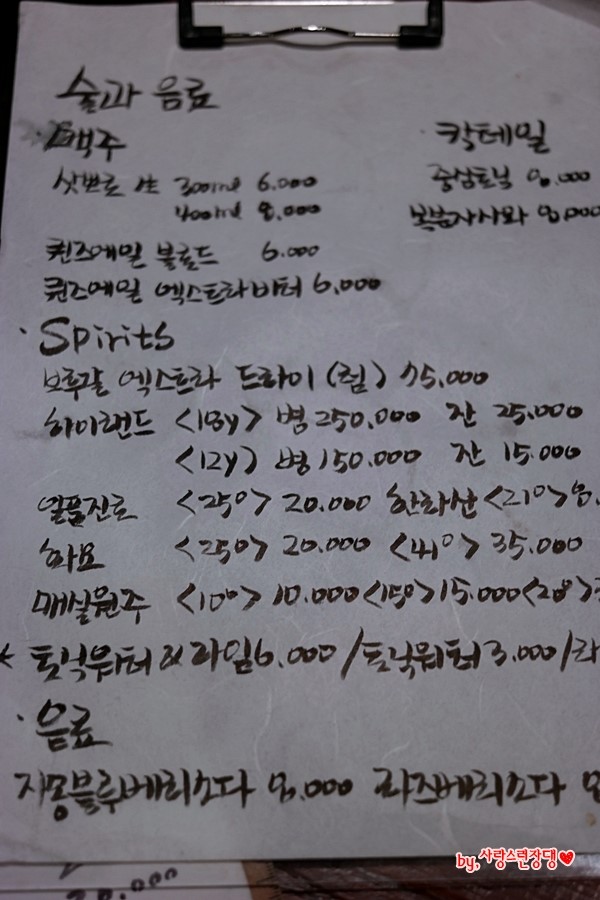 술과 음료
· 맥주
삿뽀로 生 300ml 6.000
400ml 8.000
퀸즈에일 블론드 6.000
퀸즈에일 엑스트라비터 6.000
· 칵테일
홍삼토닉 8.000
복분자사와 8.000
· Spirits
보후갈 엑스트라 드라이 (럼) 75.000
하이랜드 <18y> 병 250.000 잔 25.000
<12y> 병 150.000 잔 15.000
일품진로 <25°> 20.000 한라산 <21°> 8.
화요 <25°> 20.000 <41°> 35.000
매실원주 <10°> 10.000 <15°> 15.000 <20°>
토닉워터 & 라임 6.000 / 토닉워터 3.000 / 라
· 음료
자몽블루베리소다 8.000 라즈베리소다 8
by.사랑스런장댕♥